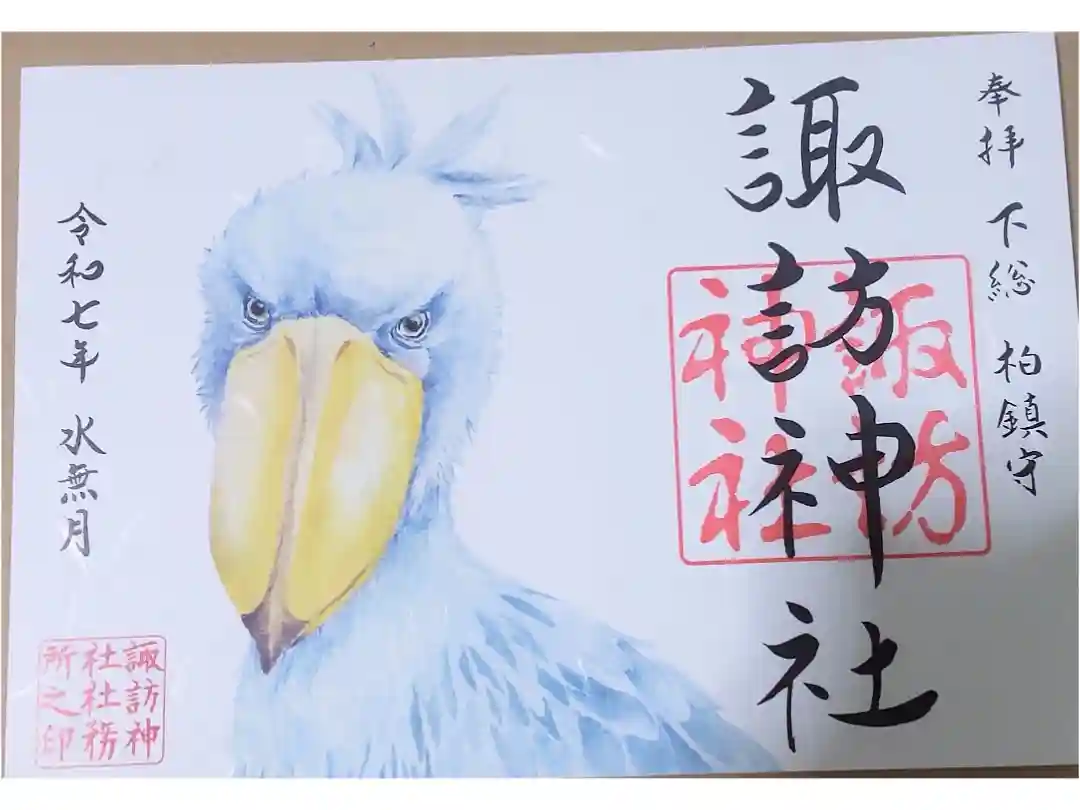 奉拝 下総 柏鎮守
諏訪神社
諏訪
神社
令和七年 水無月
諏訪神
社社務
所之印